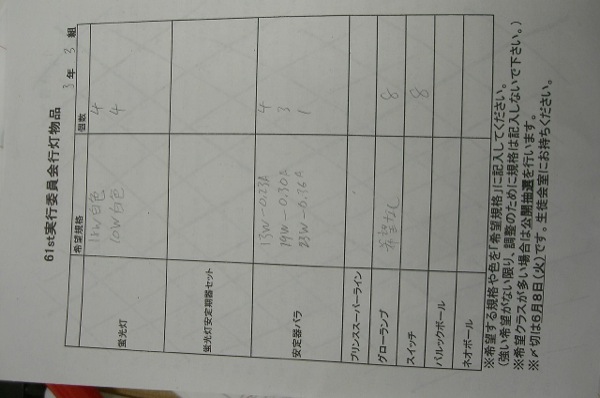 61st実行委員会行灯物品
3年 3組
希望規格 個数
蛍光灯 15W白色 4
10W白色 4
蛍光灯安定期器セット
安定器バラ 15W-0.23A 4
19W-0.30A 3
23W-0.36A 1
プリンススーパーライン
グローランプ 希望なし 8
スイッチ 8
パルックボール
ネオボール
※希望する規格や色を「希望規格」に記入してください。
(強い希望がない限り、調整のために規格は記入しないで下さい。)
※希望クラスが多い場合は公開抽選を行います。
※〆切は6月8日(火)です。生徒会室にお持ちください。